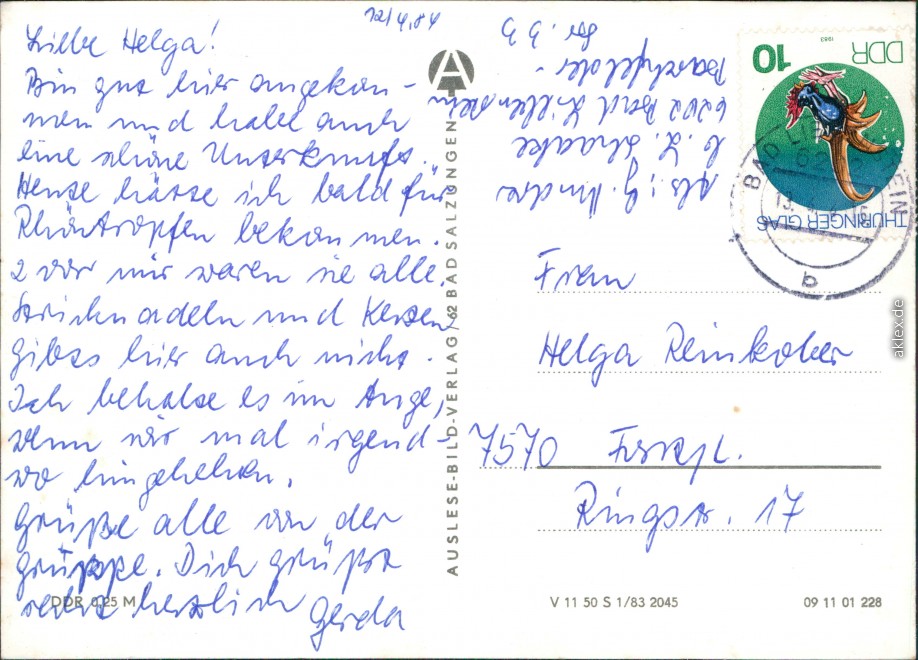 12/4.84
Liebe Helga!
Bin gut hier angekom-
men und habe auch
eine schöne Unterkunft.
Heute hätte ich bald für
Rhöntropfen bekommen.
2 vor mir waren sie alle.
Stricknadeln und Kerzen
gibts hier auch nicht.
Ich behalte es im Auge,
wenn wir mal irgend-
wo hingehen.
Grüße alle von der
Gruppe. Dich grüßt
recht herzlich Gerda
DDR 0,25 M
AUSLESE-BILD-VERLAG 62 BAD SALZUNGEN
Abs.: G.
6202 Bad Liebenstein
Barchfelder-
Str. 33
DDR
10
1983
THÜRINGER GLAS
BAD
b
Frau
Helga Reinkober
7570 Forst
Ringstr. 17
V 11 50 S 1/83 2045
09 11 01 228
aklex.de